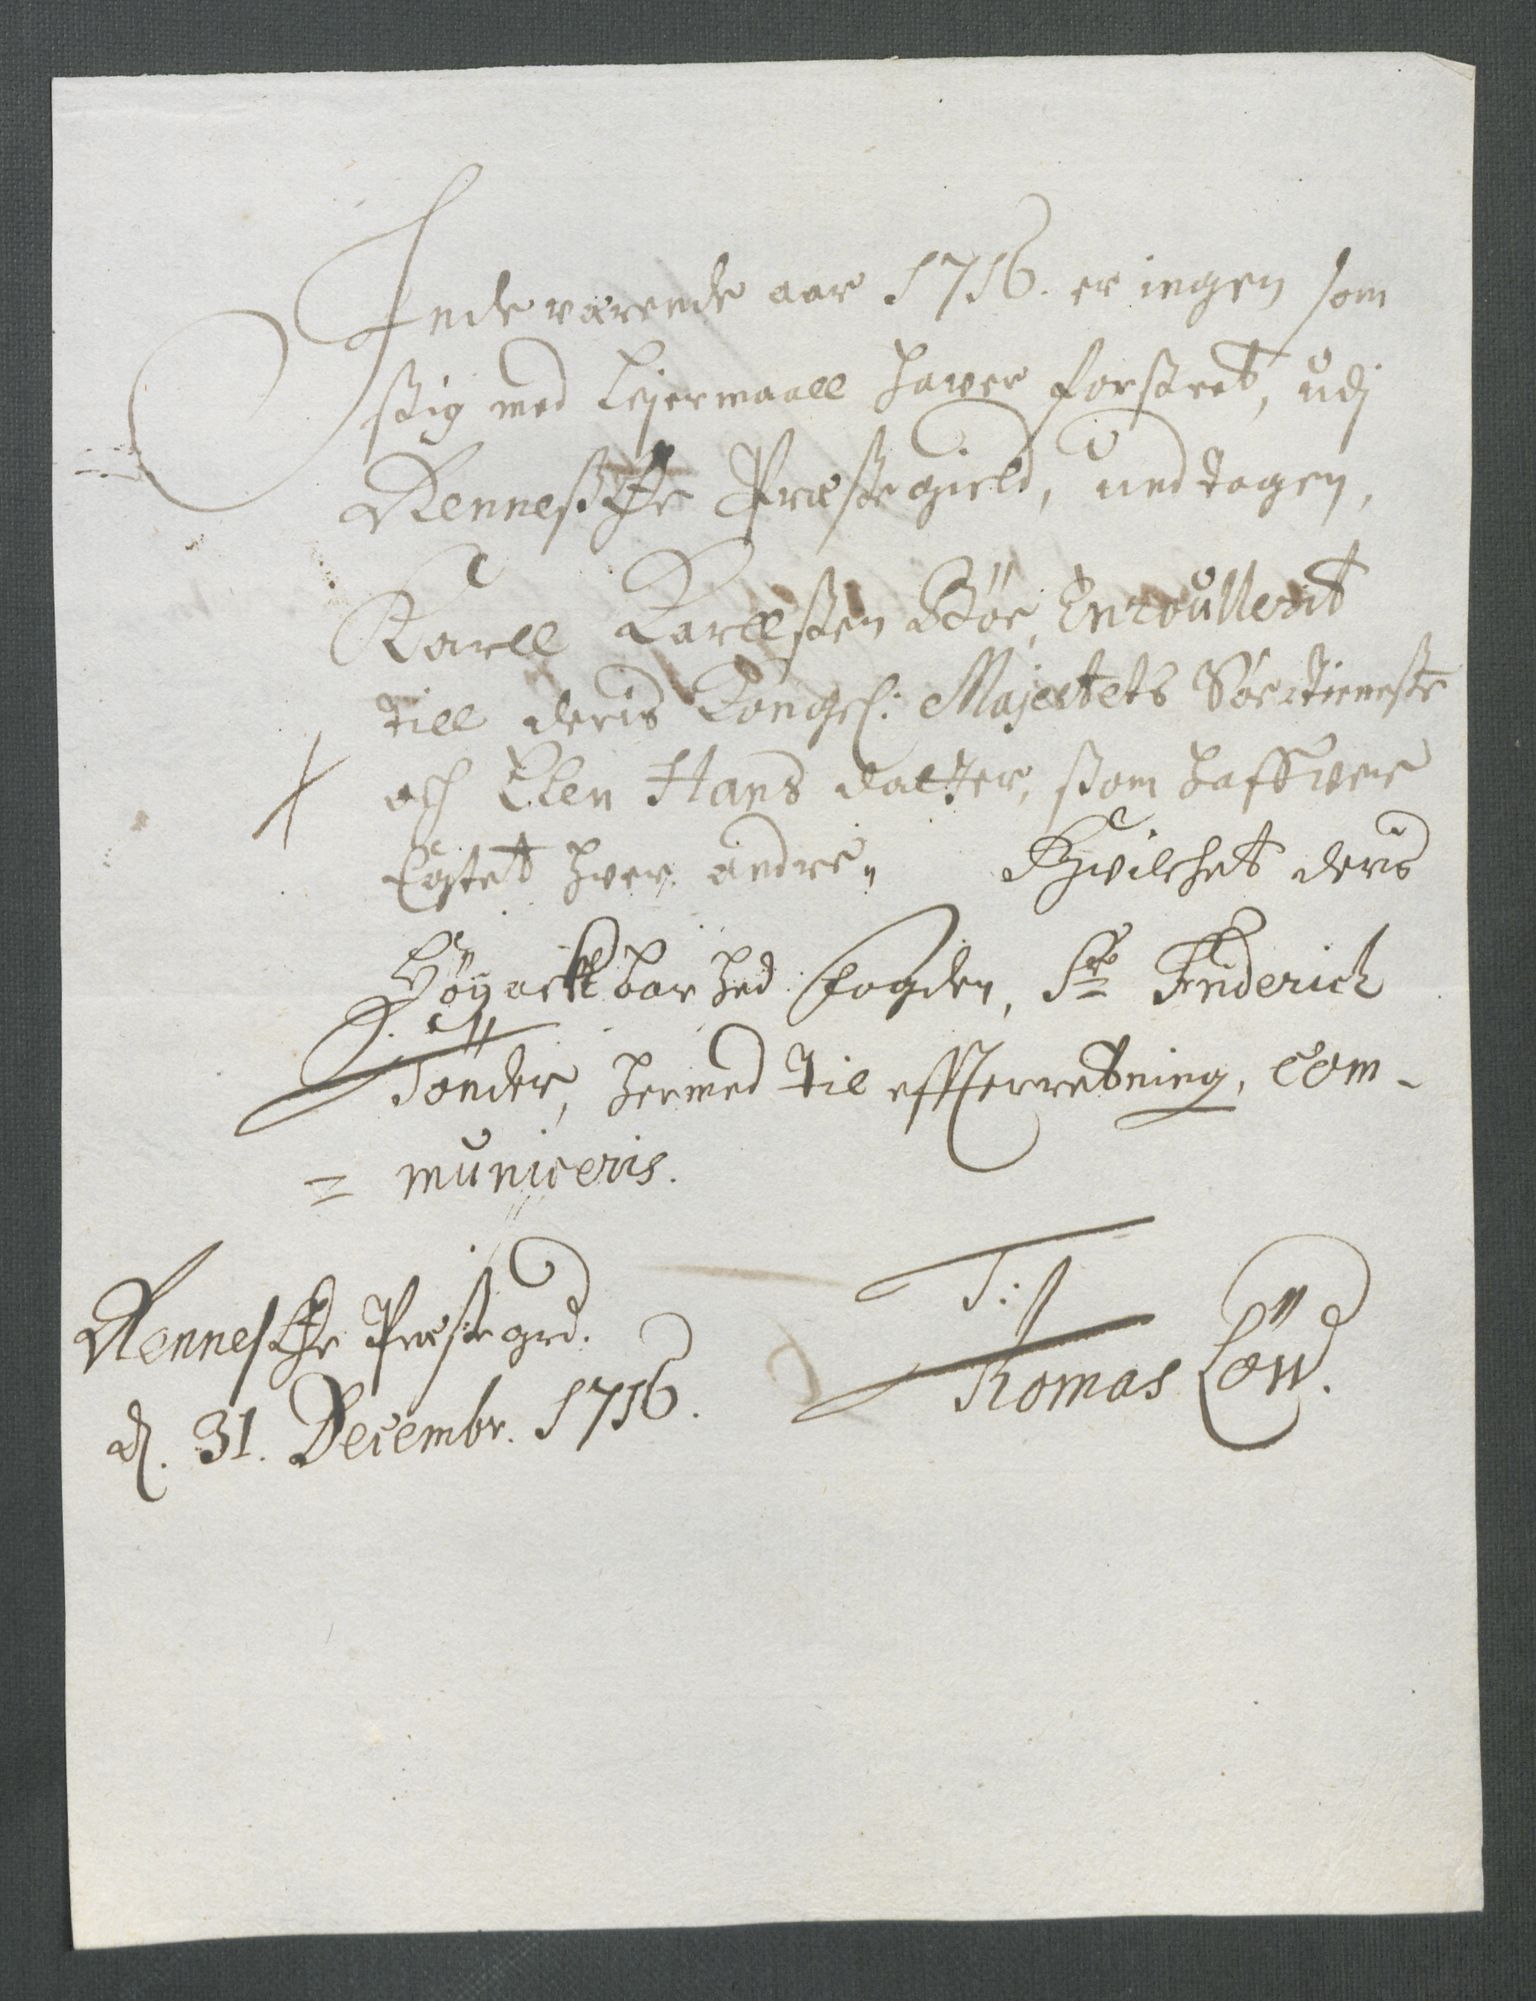 Inde værende aar 1716. er ingen som
ßig med Lejermaall hawer forßeet, udj
Rennesøe Præstegield, und tagen,
Karll Karllßen Böe, Enroullerit
till deris Kongel: Majestets Söe tieneste
och Elen Hans daater, ßom haffver
Egtet hver andre„ Hvilchet deris
Höyacktbarhed Fogden, Sr Friderich
Tönder, hermed til effterretning, com-
= municeris.
Rennesøe Præstegrd.
d. 31. Decembr. 1716.
T:
Thomas